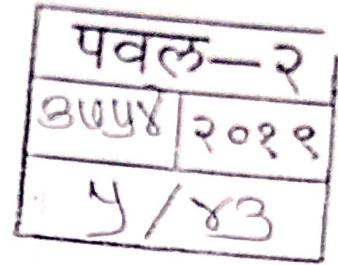 पवल-२
३७५४ २०१९
५/४३